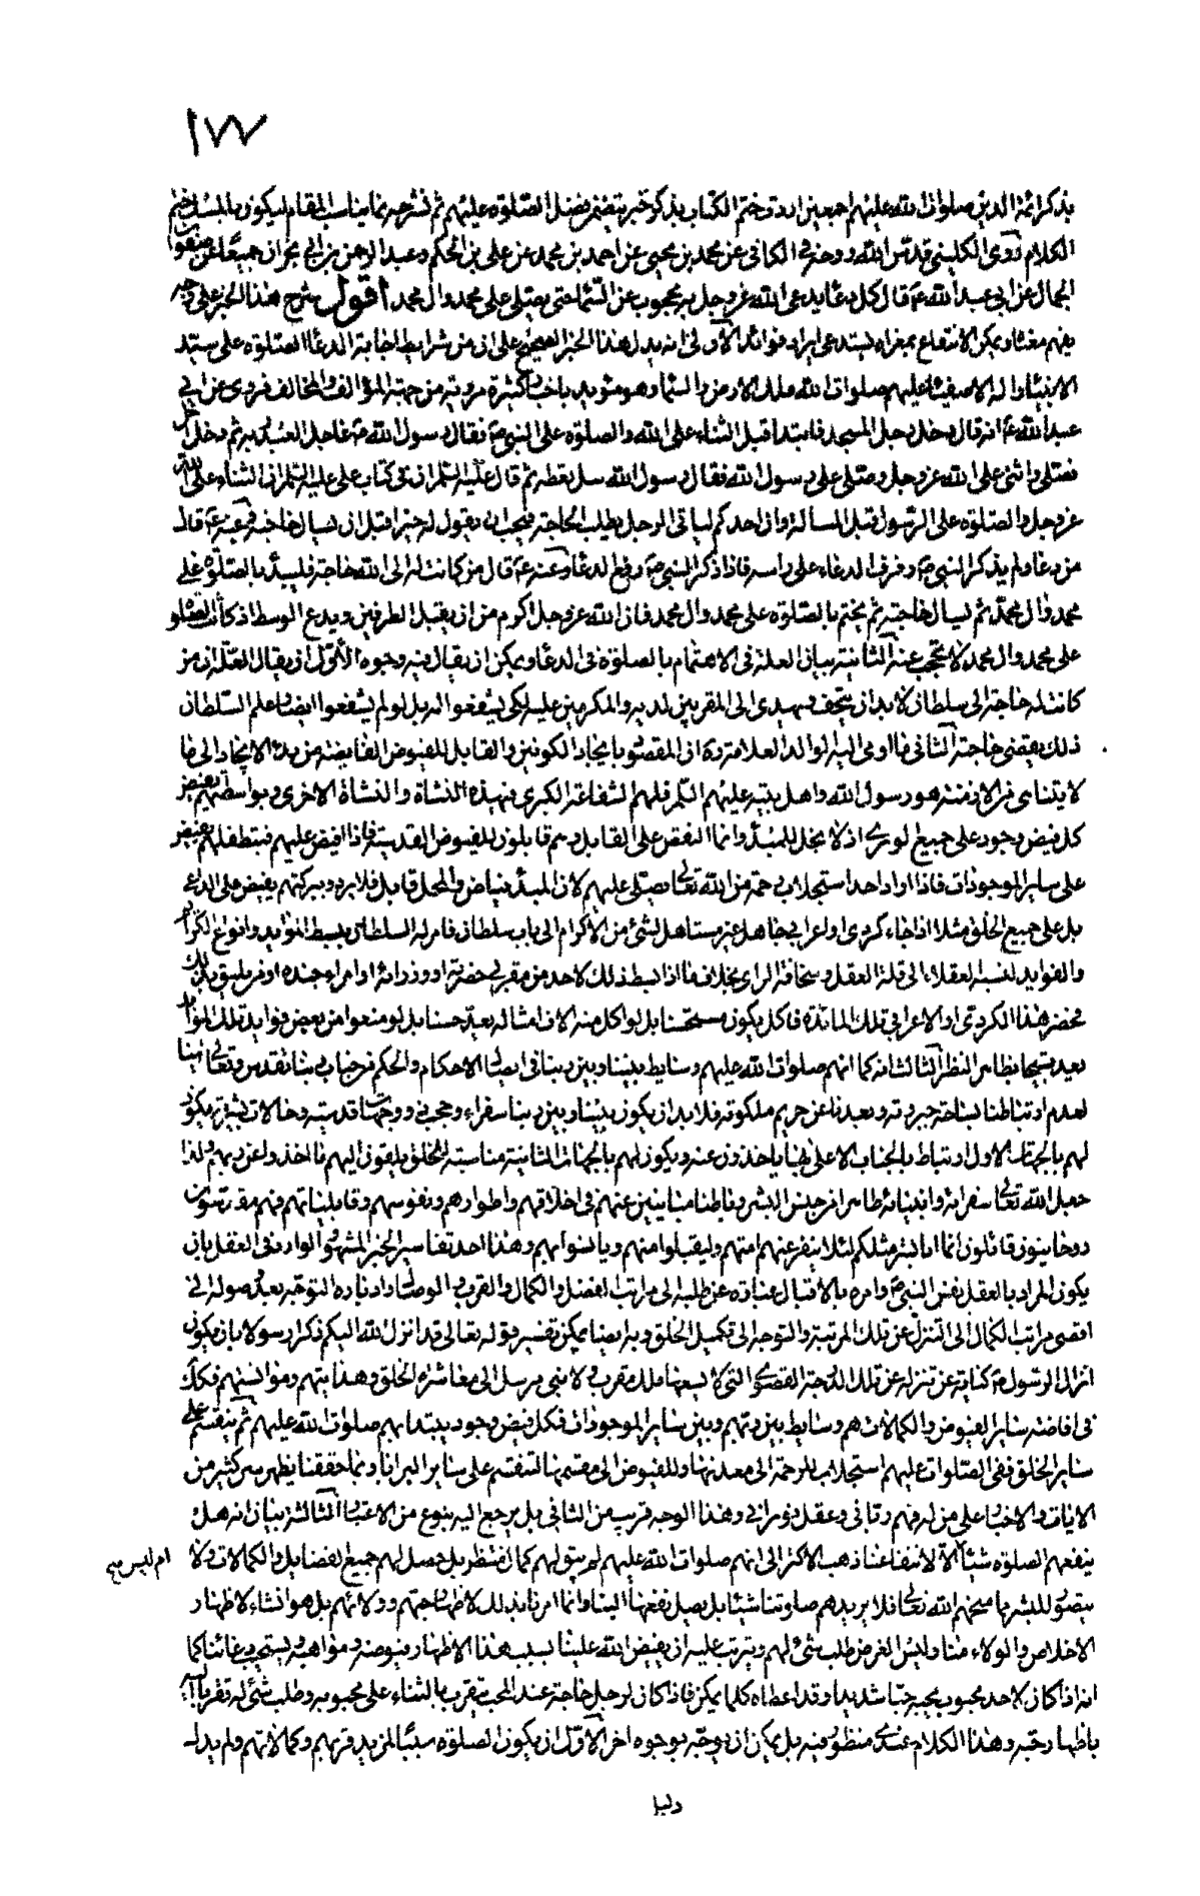 ١٧٧
بذكر ائمة الدين صلوات الله عليهم اجمعين اردت ختم الكتاب بذكر خبر يتضمن فضل الصلوة عليهم ثم نشرحه بما يناسب المقام ليكون بالمسك ختم
الكلام روى الكليني قدس الله روحه في الكافي عن محمد بن يحيى عن احمد بن محمد عن علي بن الحكم وعبد الرحمن بن ابي نجران جميعا عن صفوان
الجمال عن ابي عبد الله ع قال كل دعاء يدعى الله عز وجل به محجوب عن السماء حتى يصلى على محمد وال محمد اقول شرح هذا الخبر على وجه
يفهم معناه ويمكن الانتفاع بمغزاه يستدعي ايراد فوائد الاولى انه يدل هذا الخبر الصحيح على ان من شرايط اجابة الدعاء الصلوة على سيد
الانبياء واله الاصفياء عليهم صلوات الله ملك الارض والسماء وهو مؤيد باخبار كثيرة مروية من جهة المؤالف والمخالف فروى عن ابي
عبد الله ع انه قال دخل رجل المسجد فابتدا قبل الثناء على الله والصلوة على النبي ص فقال رسول الله ص عاجل العبد ربه ثم دخل اخر
فصلى واثنى على الله عز وجل وصلى على رسول الله فقال رسول الله سل تعطه ثم قال عليه السلم ان في كتاب علي عليه السلم ان الثناء على الله
عز وجل والصلوة على الرسول قبل المسالة وان احدكم لياتي الرجل يطلب الحاجة فيحب ان يقول له خيرا قبل ان يسال حاجته وعنه ع قال
من دعا ولم يذكر النبي ص رفرف الدعاء على راسه فاذا ذكر النبي ص رفع الدعاء وعنه ع قال من كانت له الى الله حاجة فليبدأ بالصلوة على
محمد وال محمد ثم ليسال حاجته ثم يختم بالصلوة على محمد وال محمد فان الله عز وجل اكرم من ان يقبل الطرفين ويدع الوسط اذ كانت الصلوة
على محمد وال محمد لا تحجب عنه الثانية بيان العلة في الاهتمام بالصلوة في الدعاء ويمكن ان يقال فيه وجوه الاول ان يقال العلة ان من
كانت له حاجة الى سلطان لا بد ان يتحف ويهدي الى المقربين لديه والمكرمين عليه لكي يشفعوا له بل لو لم يشفعوا ايضا وعلم السلطان
ذلك يقضي حاجته الثاني ما اومى اليه الوالد العلامة ره ان المقصود بايجاد الكونين والقابل للفيوض الفايضة من بدء الايجاد الى ما
لا يتناهى من الازمنة هو رسول الله واهل بيته عليهم السلم فلهم الشفاعة الكبرى في هذه النشاة والنشاة الاخرى وبواسطتهم يفيض
كل فيض وجود على جميع الورى اذ لا بخل للمبدأ وانما النقص على القابل وهم قابلون للفيوض القدسية فاذا افيض عليهم فبتطفلهم يفيض
على ساير الموجودات فاذا اراد احد استجلاب رحمة من الله تعالى يصلي عليهم لان المبدأ فياض والمحل قابل فلا يرد وببركتهم يفيض على الداعي
بل على جميع الخلق مثلا اذا جاء كردي او اعرابي جاهل غير مستاهل لشئ من الاكرام الى باب سلطان فامر له السلطان ببسط الموايد وانواع الكرائم
والفوايد لنسبه العقلاء الى قلة العقل وسخافة الراي بخلاف ما اذا بسط ذلك لاحد من مقربي حضرته او وزرائه او امراء جنده او من يليق بذلك
فحضر هذا الكردي او الاعرابي تلك المائدة فاكل يكون مستحسنا بل لو اكل منه الاف امثاله يعد حسنا بل لو منعوا من بعض فوايد تلك الموائد
يعد قبيحا بظاهر النظر الثالث انه كما انهم صلوات الله عليهم وسايط بيننا وبين ربنا في ايصال الاحكام والحكم من جناب ربنا تقدس وتعالى الينا
لعدم ارتباطنا بساحة جبروته وبعدنا عن حريم ملكوته فلا بد ان يكون بيننا وبين ربنا سفراء وحجب ذووجهات قدسية وحالات بشرية يكون
لهم بالجهات الاول ارتباط بالجناب الاعلى بها ياخذون عنه ويكون لهم بالجهات الثانية مناسبة للخلق يلقون اليهم ما اخذوا عن ربهم ولذا
جعل الله تعالى سفرائه وانبيائه ظاهرا من جنس البشر وباطنا مباينين عنهم في اخلاقهم واطوارهم ونفوسهم وقابلياتهم فهم مقدسون
روحانيون قائلون انما انا بشر مثلكم لئلا ينفر عنهم امتهم وليقبلوا منهم ويانسوا بهم وهذا احد تفاسير الخبر المشهور الوارد في العقل بان
يكون المراد بالعقل نفس النبي ص وامره بالاقبال عبارة عن طلبه الى مراتب الفضل والكمال والقرب والوصال وادباره التوجه بعد وصوله الى
اقصى مراتب الكمال الى التنزل عن تلك المرتبة والتوجه الى تكميل الخلق وبه ايضا يمكن تفسير قوله تعالى قد انزل الله اليكم ذكرا رسولا بان يكون
انزال الرسول ص كناية عن تنزله عن تلك الدرجة القصوى التي لا يسعها ملك مقرب ولا نبي مرسل الى معاشرة الخلق وهدايتهم ومؤانستهم فكذلك
في افاضة ساير الفيوض والكمالات هم وسايط بين ربهم وبين ساير الموجودات فكل فيض وجود يبتدا بهم صلوات الله عليهم ثم ينقسم على
ساير الخلق ففي الصلوات عليهم استجلاب للرحمة الى معدنها وللفيوض الى مقسمها لتنقسم على ساير البرايا وبما حققنا يظهر سر كثير من
الايات والاخبار على من له فهم رباني وعقل نوراني وهذا الوجه قريب من الثاني بل يرجع اليه بنوع من الاعتبار الثالثة بيان انه هل
ينفعهم الصلوة شيئا ام لا لانتفاعنا ذهب الاكثر الى انهم صلوات الله عليهم لم يبق لهم كمال منتظر بل حصل لهم جميع الفضايل والكمالات ولا
ام ليس
يتصور للبشر ما منحهم الله تعالى فلا يزيدهم صلوتنا شيئا بل يصل نفعها الينا وانما امرنا بذلك لاظهار حبهم وولائهم بل هو انشاء لاظهار
الاخلاص والولاء منا وليس الغرض طلب شئ لهم ويترتب عليه ان يفيض الله علينا بسبب هذا الاظهار فيوضه ومواهبه ويستجيب دعائنا كما
انه اذا كان لاحد محبوب يحبه حبا شديدا وقد اعطاه كلما يمكن فاذا كان لرجل حاجة عند المحب يتقرب بالثناء على محبوبه وطلب شئ له تقربا اليه
باظهار حبه وهذا الكلام عندي منظور فيه بل يمكن ان يوجه بوجوه اخر الاول ان يكون الصلوة سببا لمزيد قربهم وكمالاتهم ولم يدل
دليل